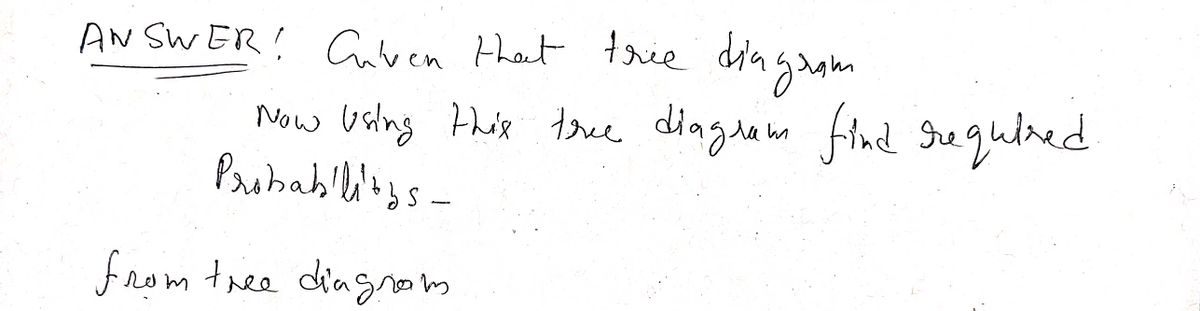 ANSWER! Given that tree diagram
Now Using this tree diagram find required
Probabilitys -
from tree diagram